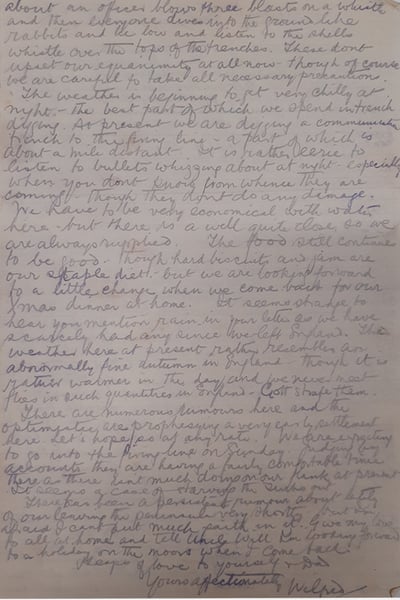 about an officer blows three blasts on a whistle
and then everyone dives into the ground like
rabbits and lie low and listen to the shells
whistle over the tops of the trenches. These dont
upset our equanimity at all now - though of course
we are careful to take all necessary precaution.
The weather is beginning to get very chilly at
night - the best part of which we spend in trench
digging. At present we are digging a communication
trench to the firing line - a part of which is
about a mile distant. It is rather eerie to
listen to bullets whizzing about at night - especially
when you dont know from whence they are
coming - though they dont do any damage.
We have to be very economical with water
here - but there is a well quite close, so we
are always supplied. The food still continues
to be good - though hard biscuits and jam are
our staple diet - but we are looking forward
to a little change when we come back for our
Xmas dinner at home. It seems strange to
hear you mention rain in your letter as we have
scarcely had any since we left England. The
weather here at present rather resembles an
abnormally fine autumn in England - though it is
rather warmer in the day and we never meet
flies in such quantities in England - Gott strafe them.
There are numerous rumours here and the
optimistic are prophesying a very early settlement
here. Let's hope so at any rate. We are expecting
to go into the firing line on Sunday. Judging by
accounts they are having a fairly comfortable time
there as there isnt much doing on our bunk at present
It seems a case of starving the Turks out.
There has been a persistent rumour about lately
of our leaving the peninsula very shortly - but I'm
afraid I cant put much faith in it. Give my love
to all at home and tell Uncle Will I'm looking forward
to a holiday on the moors when I come back.
Heaps of love to yourself & Dad
Yours affectionately
Wilfred